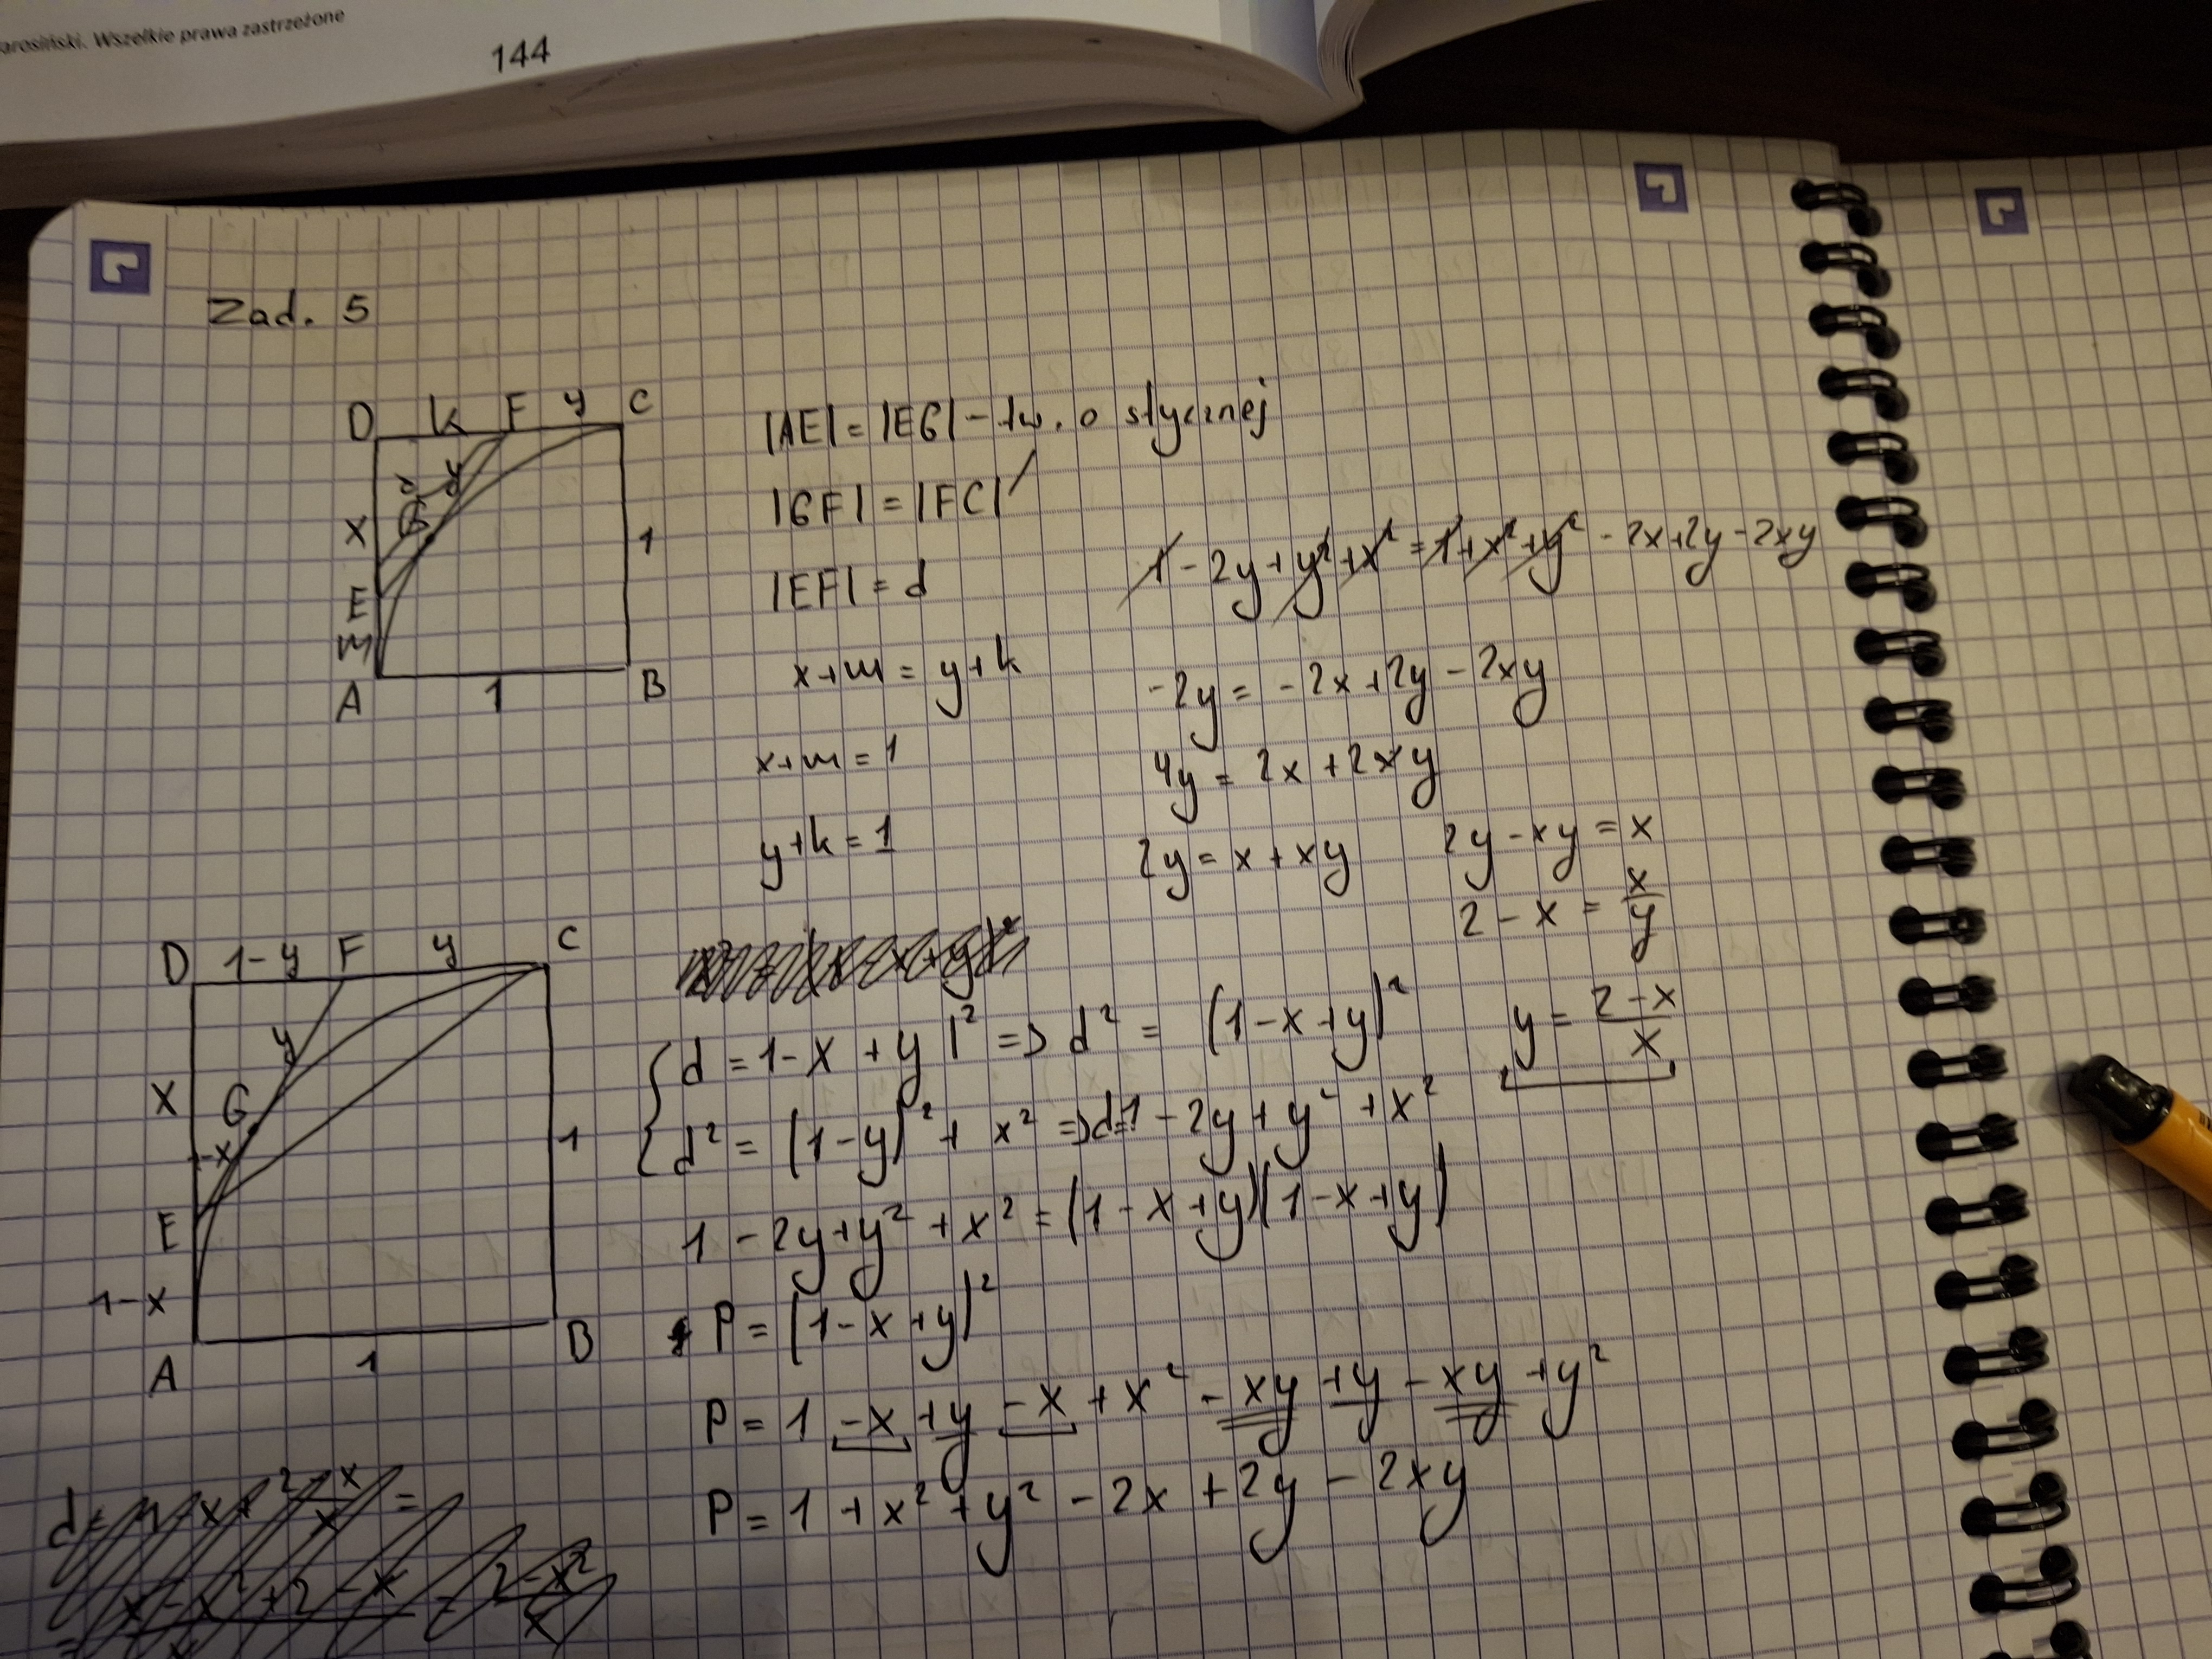 arosiński. Wszelkie prawa zastrzeżone
144
Zad. 5
D k F y C
y
G
X
E
m
1
A 1 B
|AE| = |EG| - tw. o stycznej
|GF| = |FC|
|EF| = d
x+m = y+k
x+m = 1
y+k = 1
1 - 2y + y² + x² = 1 + x² + y² - 2x + 2y - 2xy
-2y = -2x + 2y - 2xy
4y = 2x + 2xy
2y = x + xy
2y - xy = x
2 - x = x/y
y = 2-x/x
D 1-y F y C
y
X
G
1-x
E
1
1-x
A 1 B
d = 1-x+y |² => d² = (1-x+y)²
d² = (1-y)² + x² => d²=1 - 2y + y² + x²
1 - 2y + y² + x² = (1-x+y)(1-x+y)
P = (1-x+y)²
P = 1 -x +y -x + x² - xy + y - xy + y²
P = 1 + x² + y² - 2x + 2y - 2xy